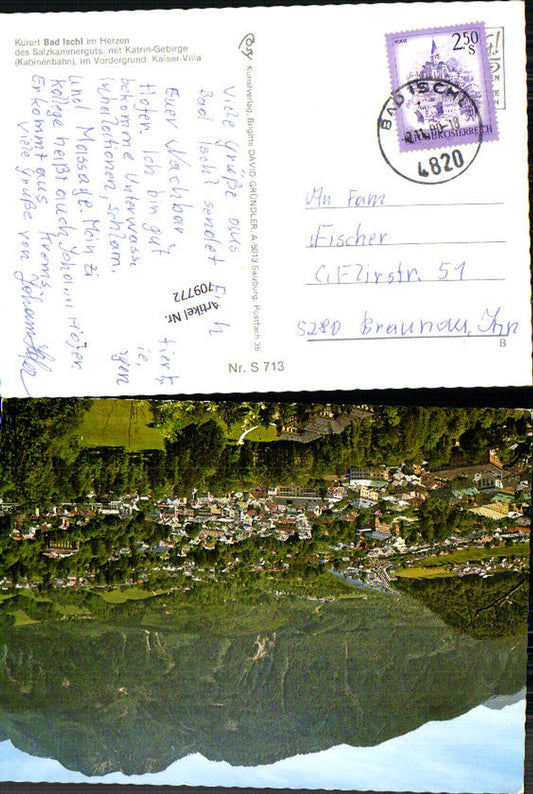 Kurort Bad Ischl im Herzen
des Salzkammerguts, mit Katrin-Gebirge
(Kabinenbahn), im Vordergrund: Kaiser-Villa
Viele Grüße aus
Bad Ischl sendet Euch
Euer Nachbar
Höfer. Ich bin gut
bekomme Unterwasser
Inhalationen, Schlam
und Massage. Mein Zi
kollege heißt auch Johann Höfer
Er kommt aus Krems.
Viele Grüße von Johann Höfer
Artikel Nr.
709772
Cosy
Kunstverlag, Brigitte DAVID-GRÜNDLER, A-5013 Salzburg, Postfach 35
Nr. S 713
2.50
S
REPUBLIK ÖSTERREICH
BAD ISCHL
4820
An Fam
Fischer
51
5280 Braunau, Inn
B